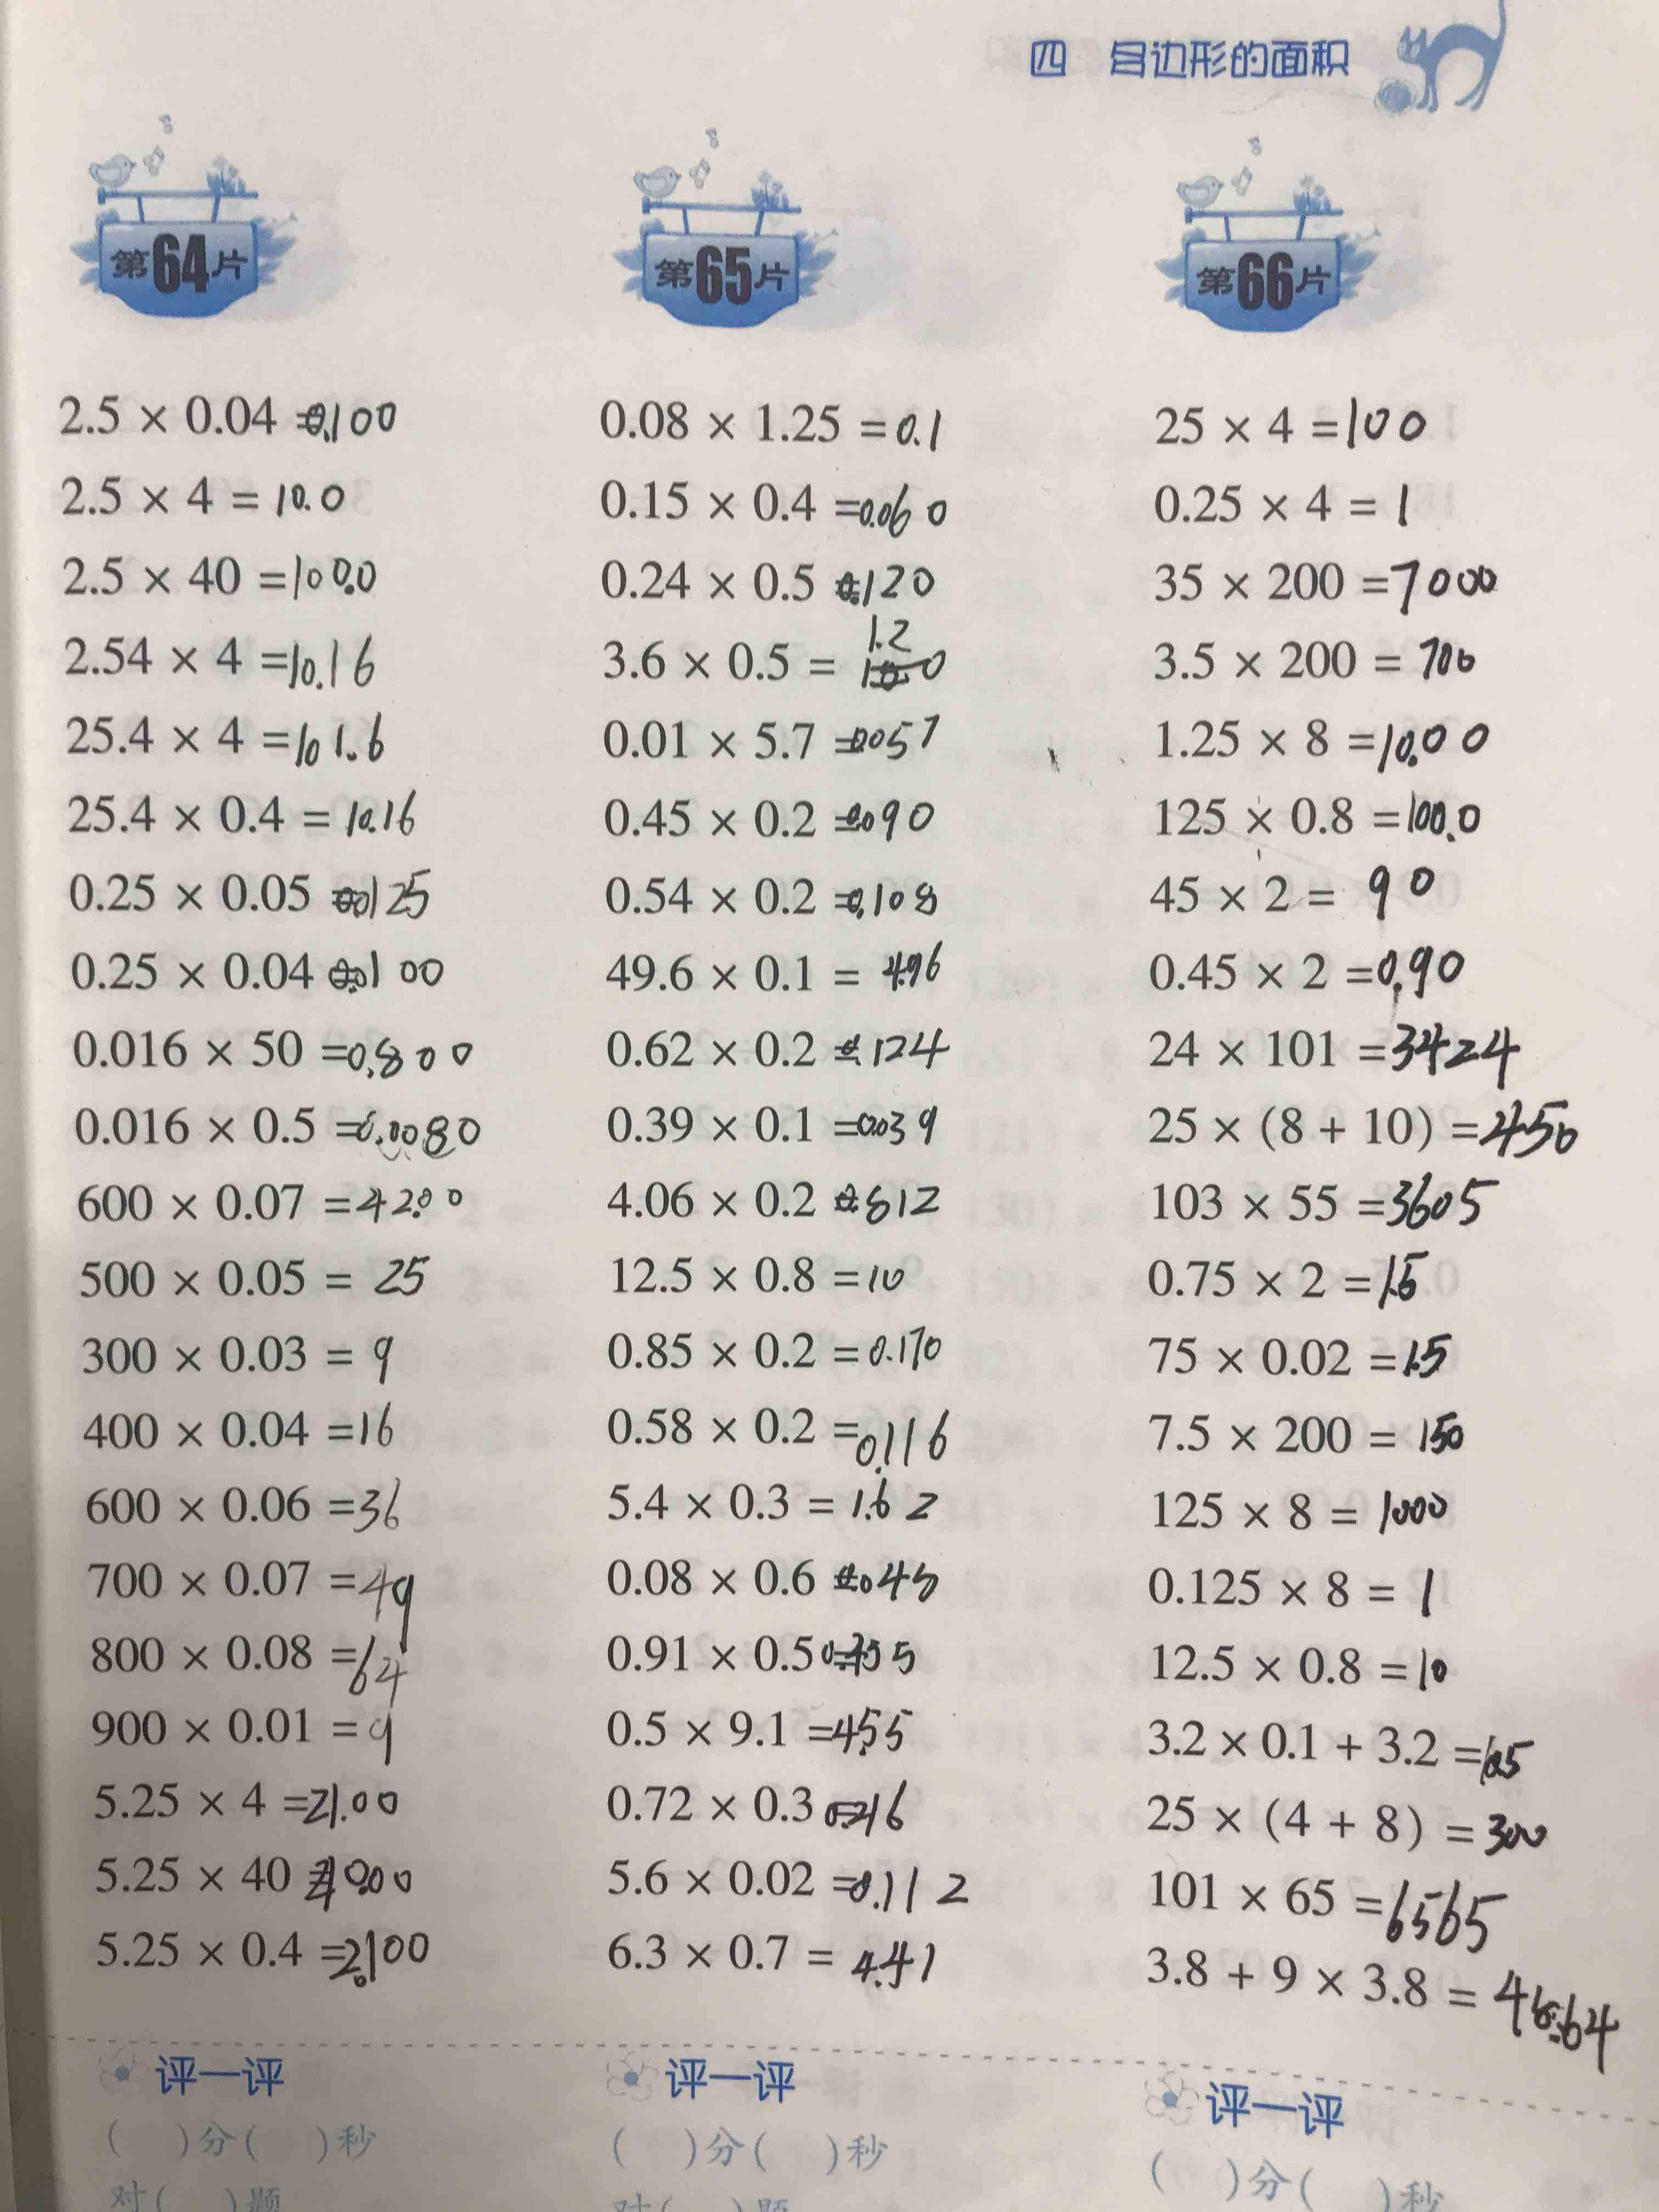 四 多边形的面积
第64片
2.5 × 0.04 = 0.100
2.5 × 4 = 10.0
2.5 × 40 = 100.0
2.54 × 4 = 10.16
25.4 × 4 = 101.6
25.4 × 0.4 = 10.16
0.25 × 0.05 = 0.0125
0.25 × 0.04 = 0.0100
0.016 × 50 = 0.800
0.016 × 0.5 = 0.0080
600 × 0.07 = 42.00
500 × 0.05 = 25
300 × 0.03 = 9
400 × 0.04 = 16
600 × 0.06 = 36
700 × 0.07 = 49
800 × 0.08 = 64
900 × 0.01 = 9
5.25 × 4 = 21.00
5.25 × 40 =
5.25 × 0.4 = 2.100
评一评
( )分( )秒
对( )题
第65片
0.08 × 1.25 = 0.1
0.15 × 0.4 = 0.060
0.24 × 0.5 = 0.120
3.6 × 0.5 = 1.2
0.01 × 5.7 = 0.057
0.45 × 0.2 = 0.090
0.54 × 0.2 = 0.108
49.6 × 0.1 = 4.96
0.62 × 0.2 = 0.124
0.39 × 0.1 = 0.039
4.06 × 0.2 = 0.812
12.5 × 0.8 = 10
0.85 × 0.2 = 0.170
0.58 × 0.2 = 0.116
5.4 × 0.3 = 1.62
0.08 × 0.6 = 0.048
0.91 × 0.5 =
0.5 × 9.1 = 4.55
0.72 × 0.3 = 0.216
5.6 × 0.02 = 0.112
6.3 × 0.7 = 4.41
评一评
( )分( )秒
对( )题
第66片
25 × 4 = 100
0.25 × 4 = 1
35 × 200 = 7000
3.5 × 200 = 700
1.25 × 8 = 10.00
125 × 0.8 = 100.0
45 × 2 = 90
0.45 × 2 = 0.90
24 × 101 = 3424
25 × (8 + 10) = 450
103 × 55 = 3605
0.75 × 2 = 1.5
75 × 0.02 = 1.5
7.5 × 200 = 150
125 × 8 = 1000
0.125 × 8 = 1
12.5 × 0.8 = 10
3.2 × 0.1 + 3.2 =
25 × (4 + 8) = 300
101 × 65 = 6565
3.8 + 9 × 3.8 =
评一评
( )分( )秒